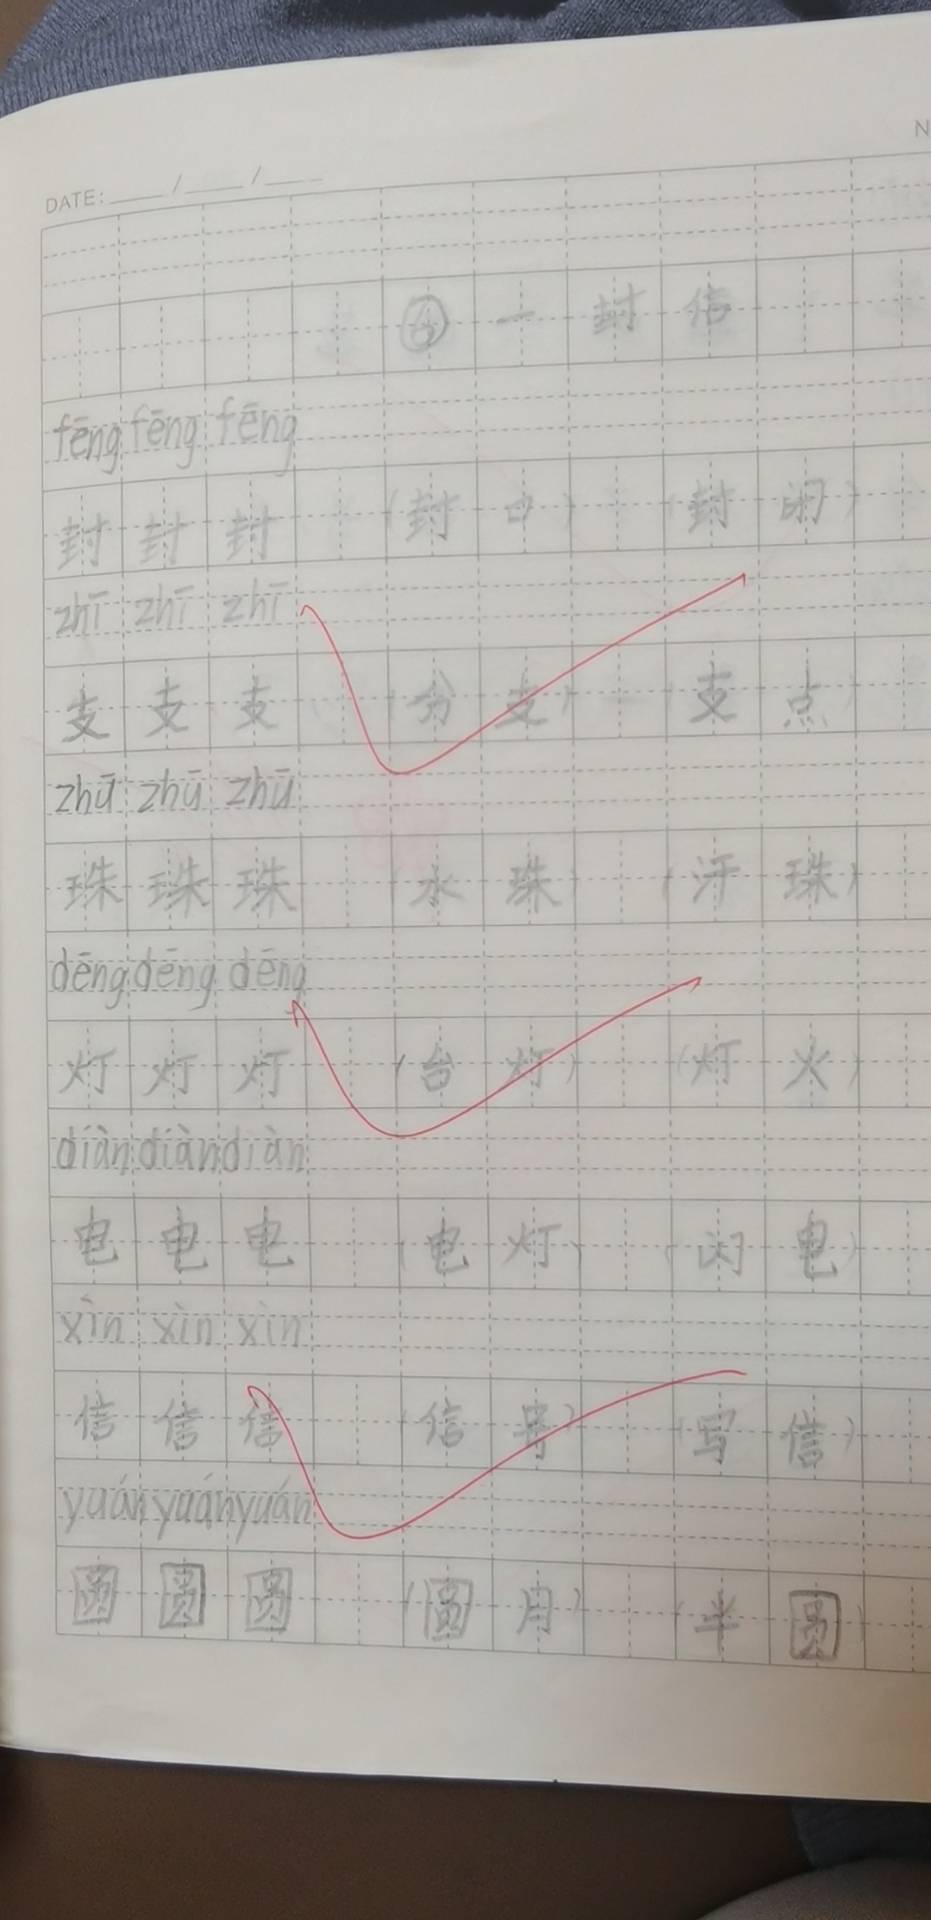 N
DATE: ___/___/___
⑥ 一封信
fēng fēng fēng
封 封 封 (封口) (封闭)
zhī zhī zhī
支 支 支 (分支) (支点)
zhū zhū zhū
珠 珠 珠 (水珠) (汗珠)
dēng dēng dēng
灯 灯 灯 (台灯) (灯火)
diàn diàn diàn
电 电 电 (电灯) (闪电)
xìn xìn xìn
信 信 信 (信号) (写信)
yuán yuán yuán
圆 圆 圆 (圆月) (半圆)